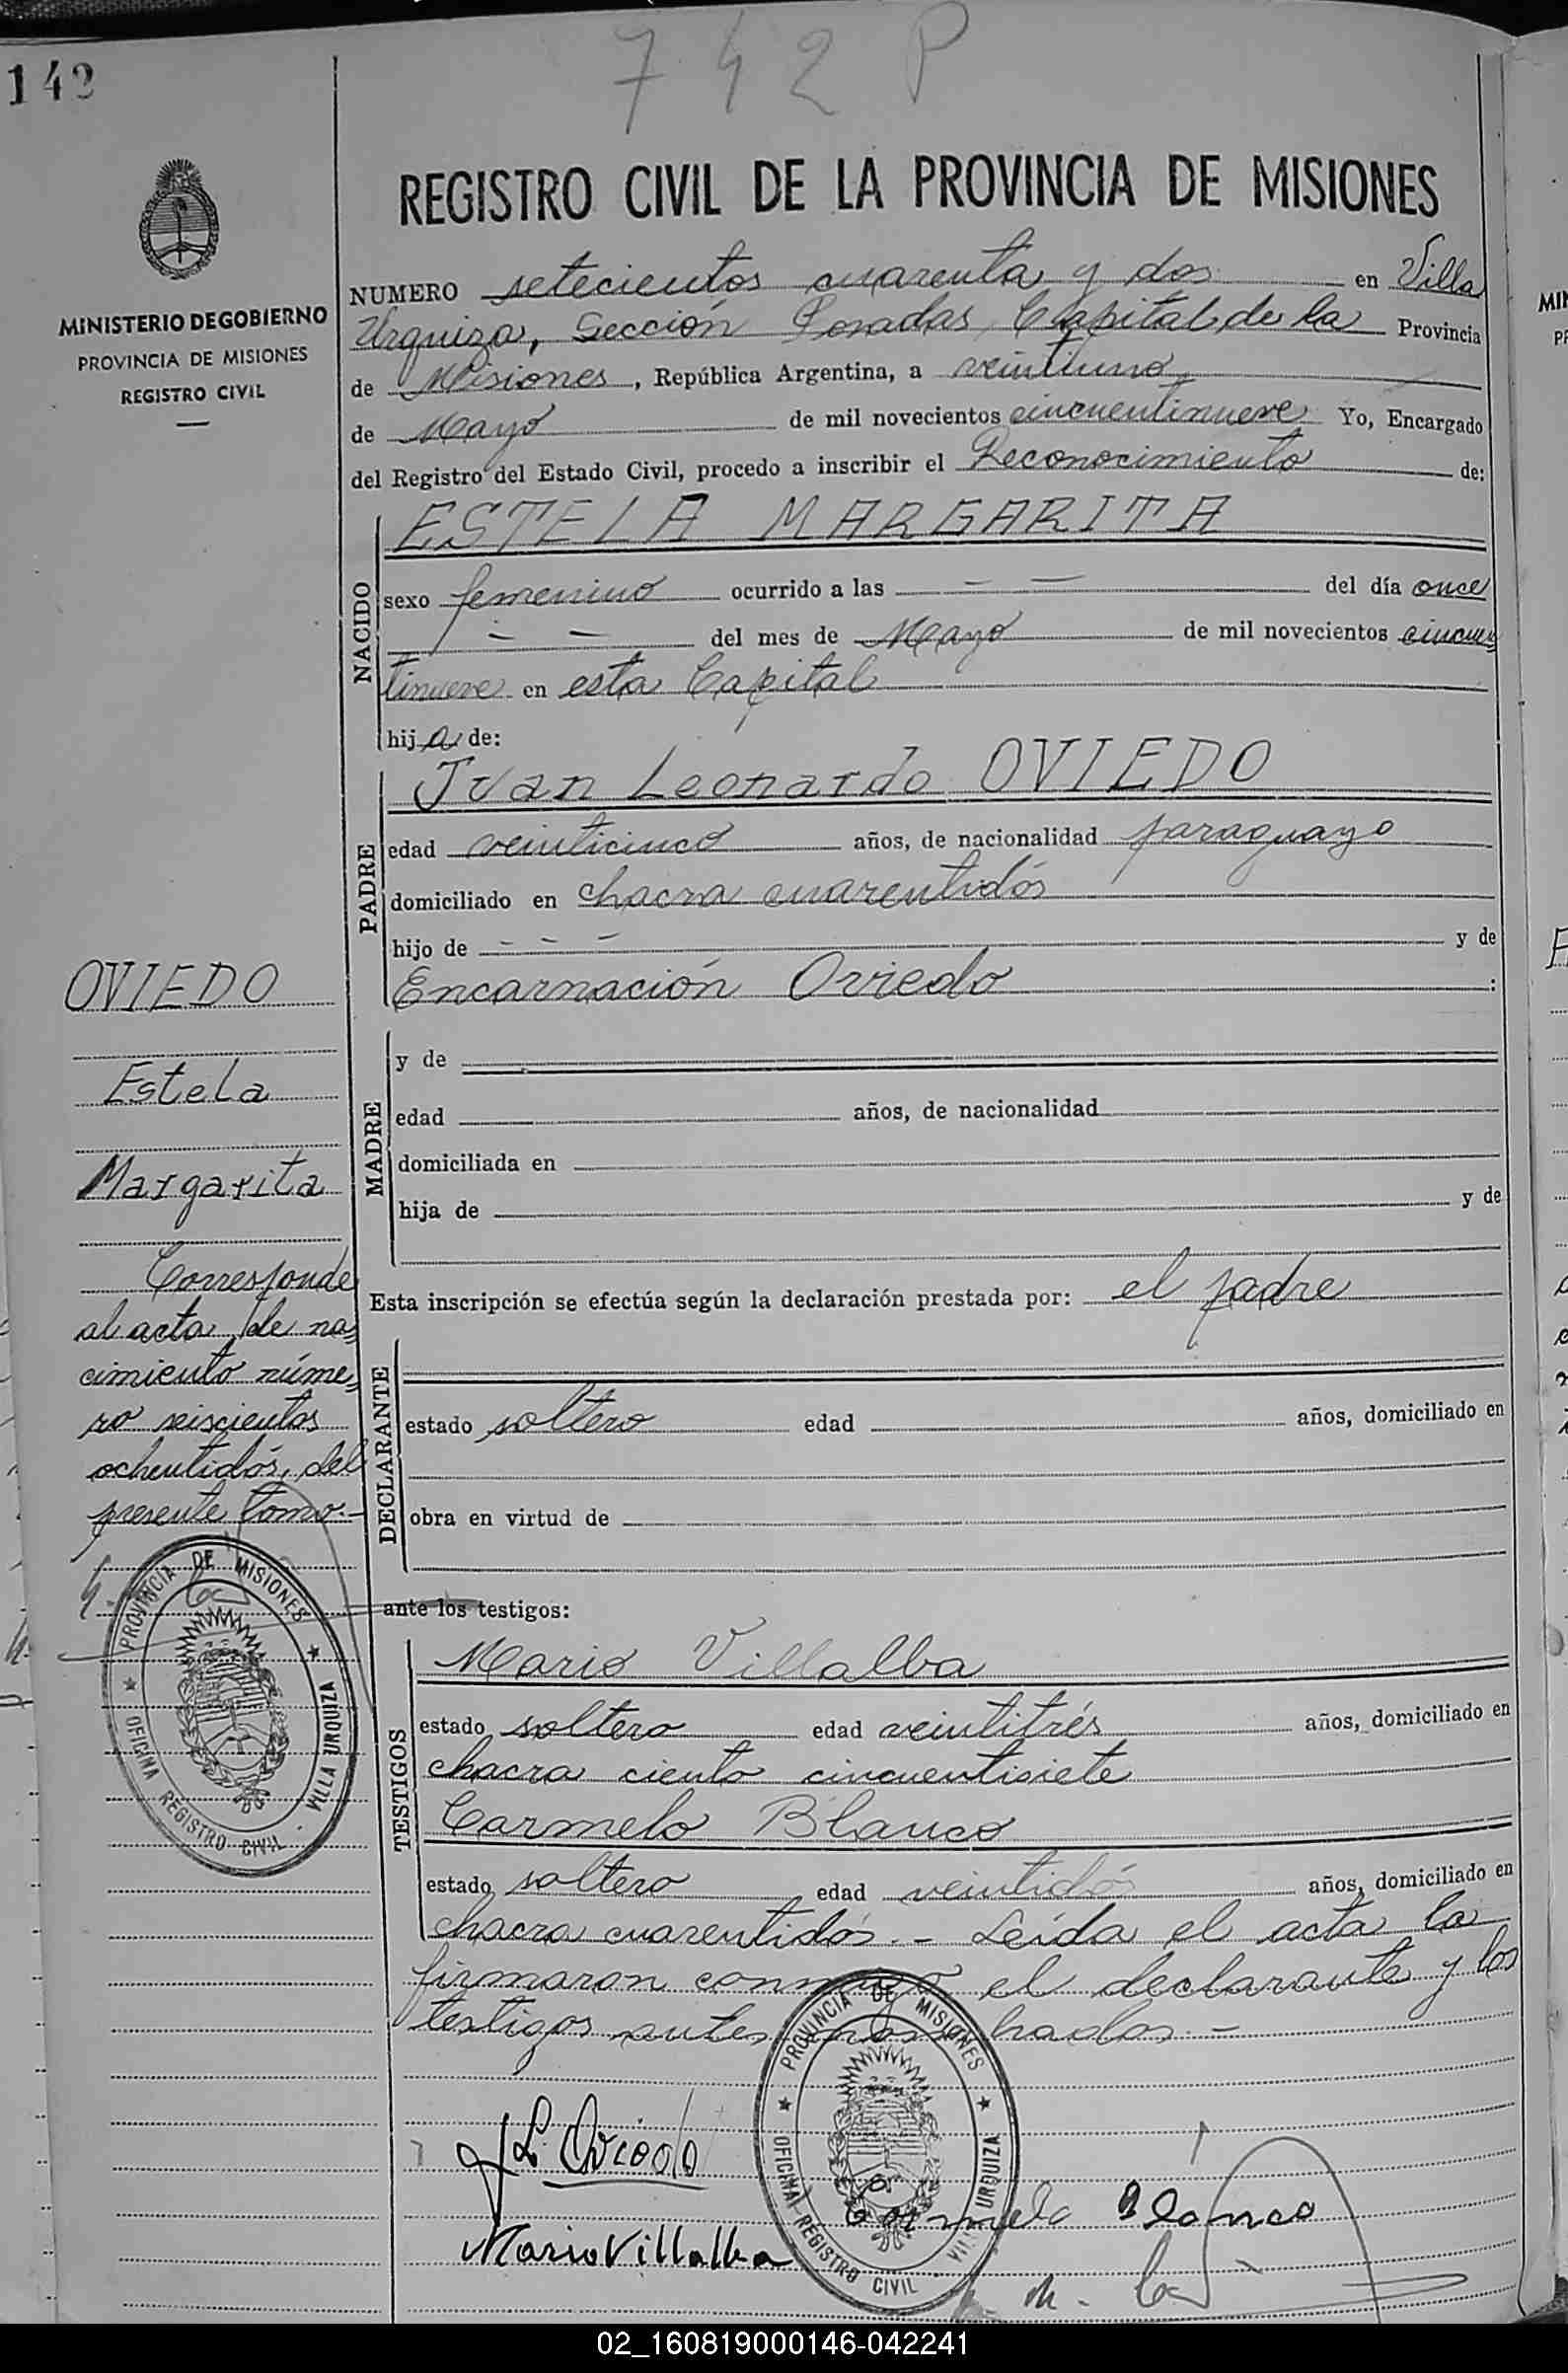 142
742 P
MINISTERIO DE GOBIERNO
PROVINCIA DE MISIONES
REGISTRO CIVIL
REGISTRO CIVIL DE LA PROVINCIA DE MISIONES
NUMERO setecientos cuarenta y dos en Villa
Urquiza, Sección Posadas, Capital de la Provincia
de Misiones, República Argentina, a veintiuno
de Mayo de mil novecientos cincuentinueve Yo, Encargado
del Registro del Estado Civil, procedo a inscribir el Reconocimiento de:
NACIDO
ESTELA MARGARITA
sexo femenino ocurrido a las — — del día once
— — del mes de Mayo de mil novecientos cincuen
tinueve en esta Capital
hija de:
PADRE
Juan Leonardo OVIEDO
edad veinticinco años, de nacionalidad paraguayo
domiciliado en chacra cuarentidós
hijo de - - - y de
Encarnación Oviedo :
MADRE
y de
edad años, de nacionalidad
domiciliada en
hija de y de
Esta inscripción se efectúa según la declaración prestada por: el padre
DECLARANTE
estado soltero edad años, domiciliado en
obra en virtud de
ante los testigos:
TESTIGOS
Mario Villalba
estado soltero edad veintitrés años, domiciliado en
chacra ciento cincuentisiete
Carmelo Blanco
estado soltero edad veintidós años, domiciliado en
chacra cuarentidós.- Leída el acta la
firmaron conmigo el declarante y los
testigos antes nombrados.-
OVIEDO
Estela
Margarita
Corresponde
al acta de na=
cimiento núme=
ro seiscientos
ochentidós, del
presente tomo.-
PROVINCIA DE MISIONES
OFICINA REGISTRO CIVIL · VILLA URQUIZA
J L. Oviedo
PROVINCIA DE MISIONES
OFICINA REGISTRO CIVIL · VILLA URQUIZA
Carmelo Blanco
Mario Villalba
MIN
02_160819000146-042241